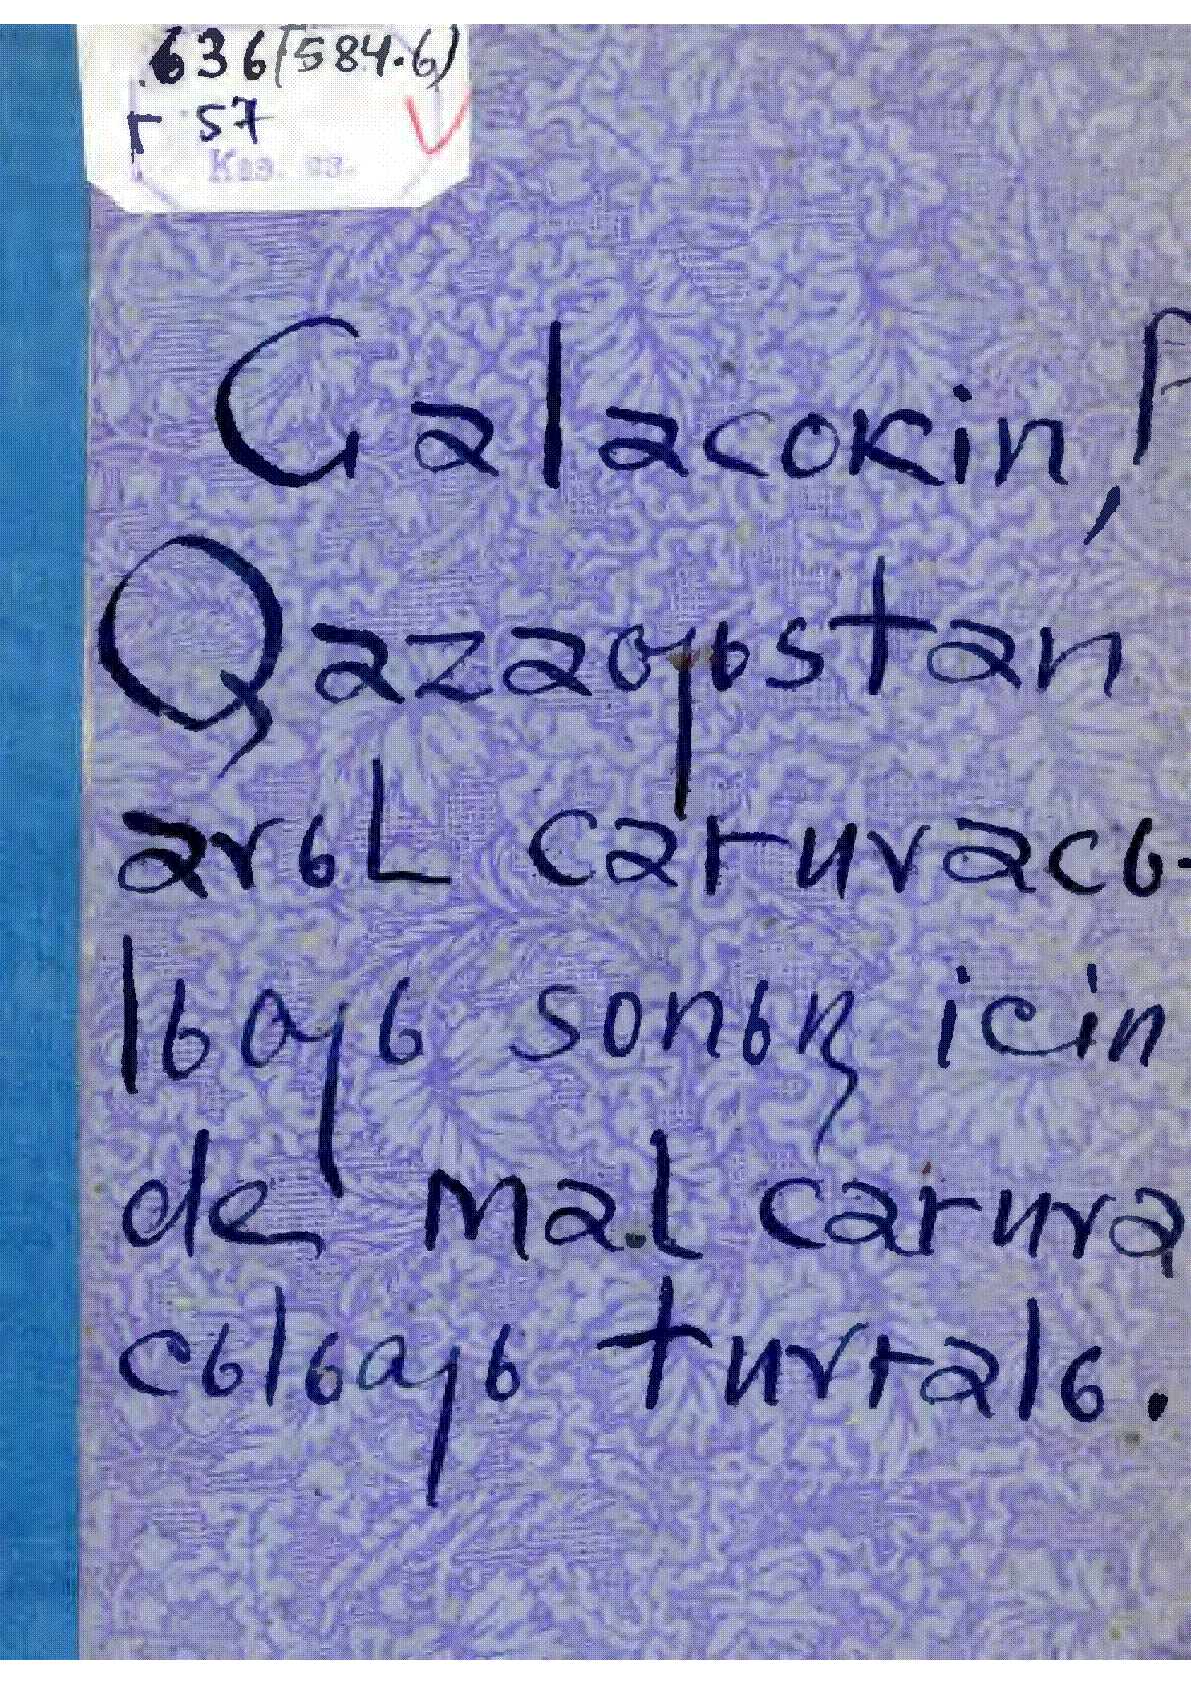 636(584.6)
Г 57
Каз. яз.
Galacokin,
Qazaqьstan
avьl caruvacь-
lьqь sonьꞑ icin
de mal caruva
cьlьqь tuvralь.